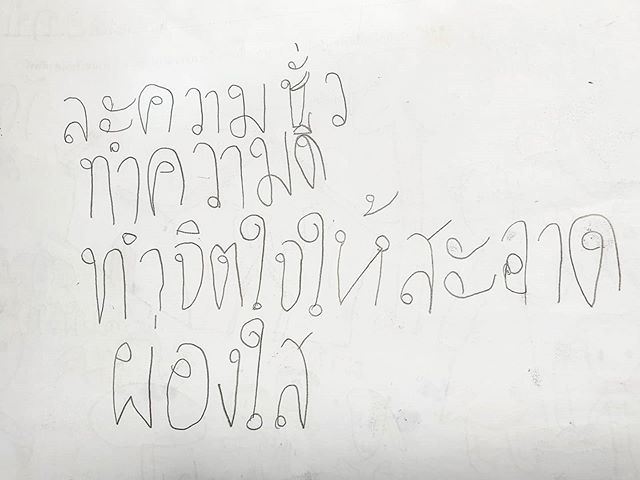 ละความชั่ว
ทำความดี
ทำจิตใจให้สะอาด
ผองใส